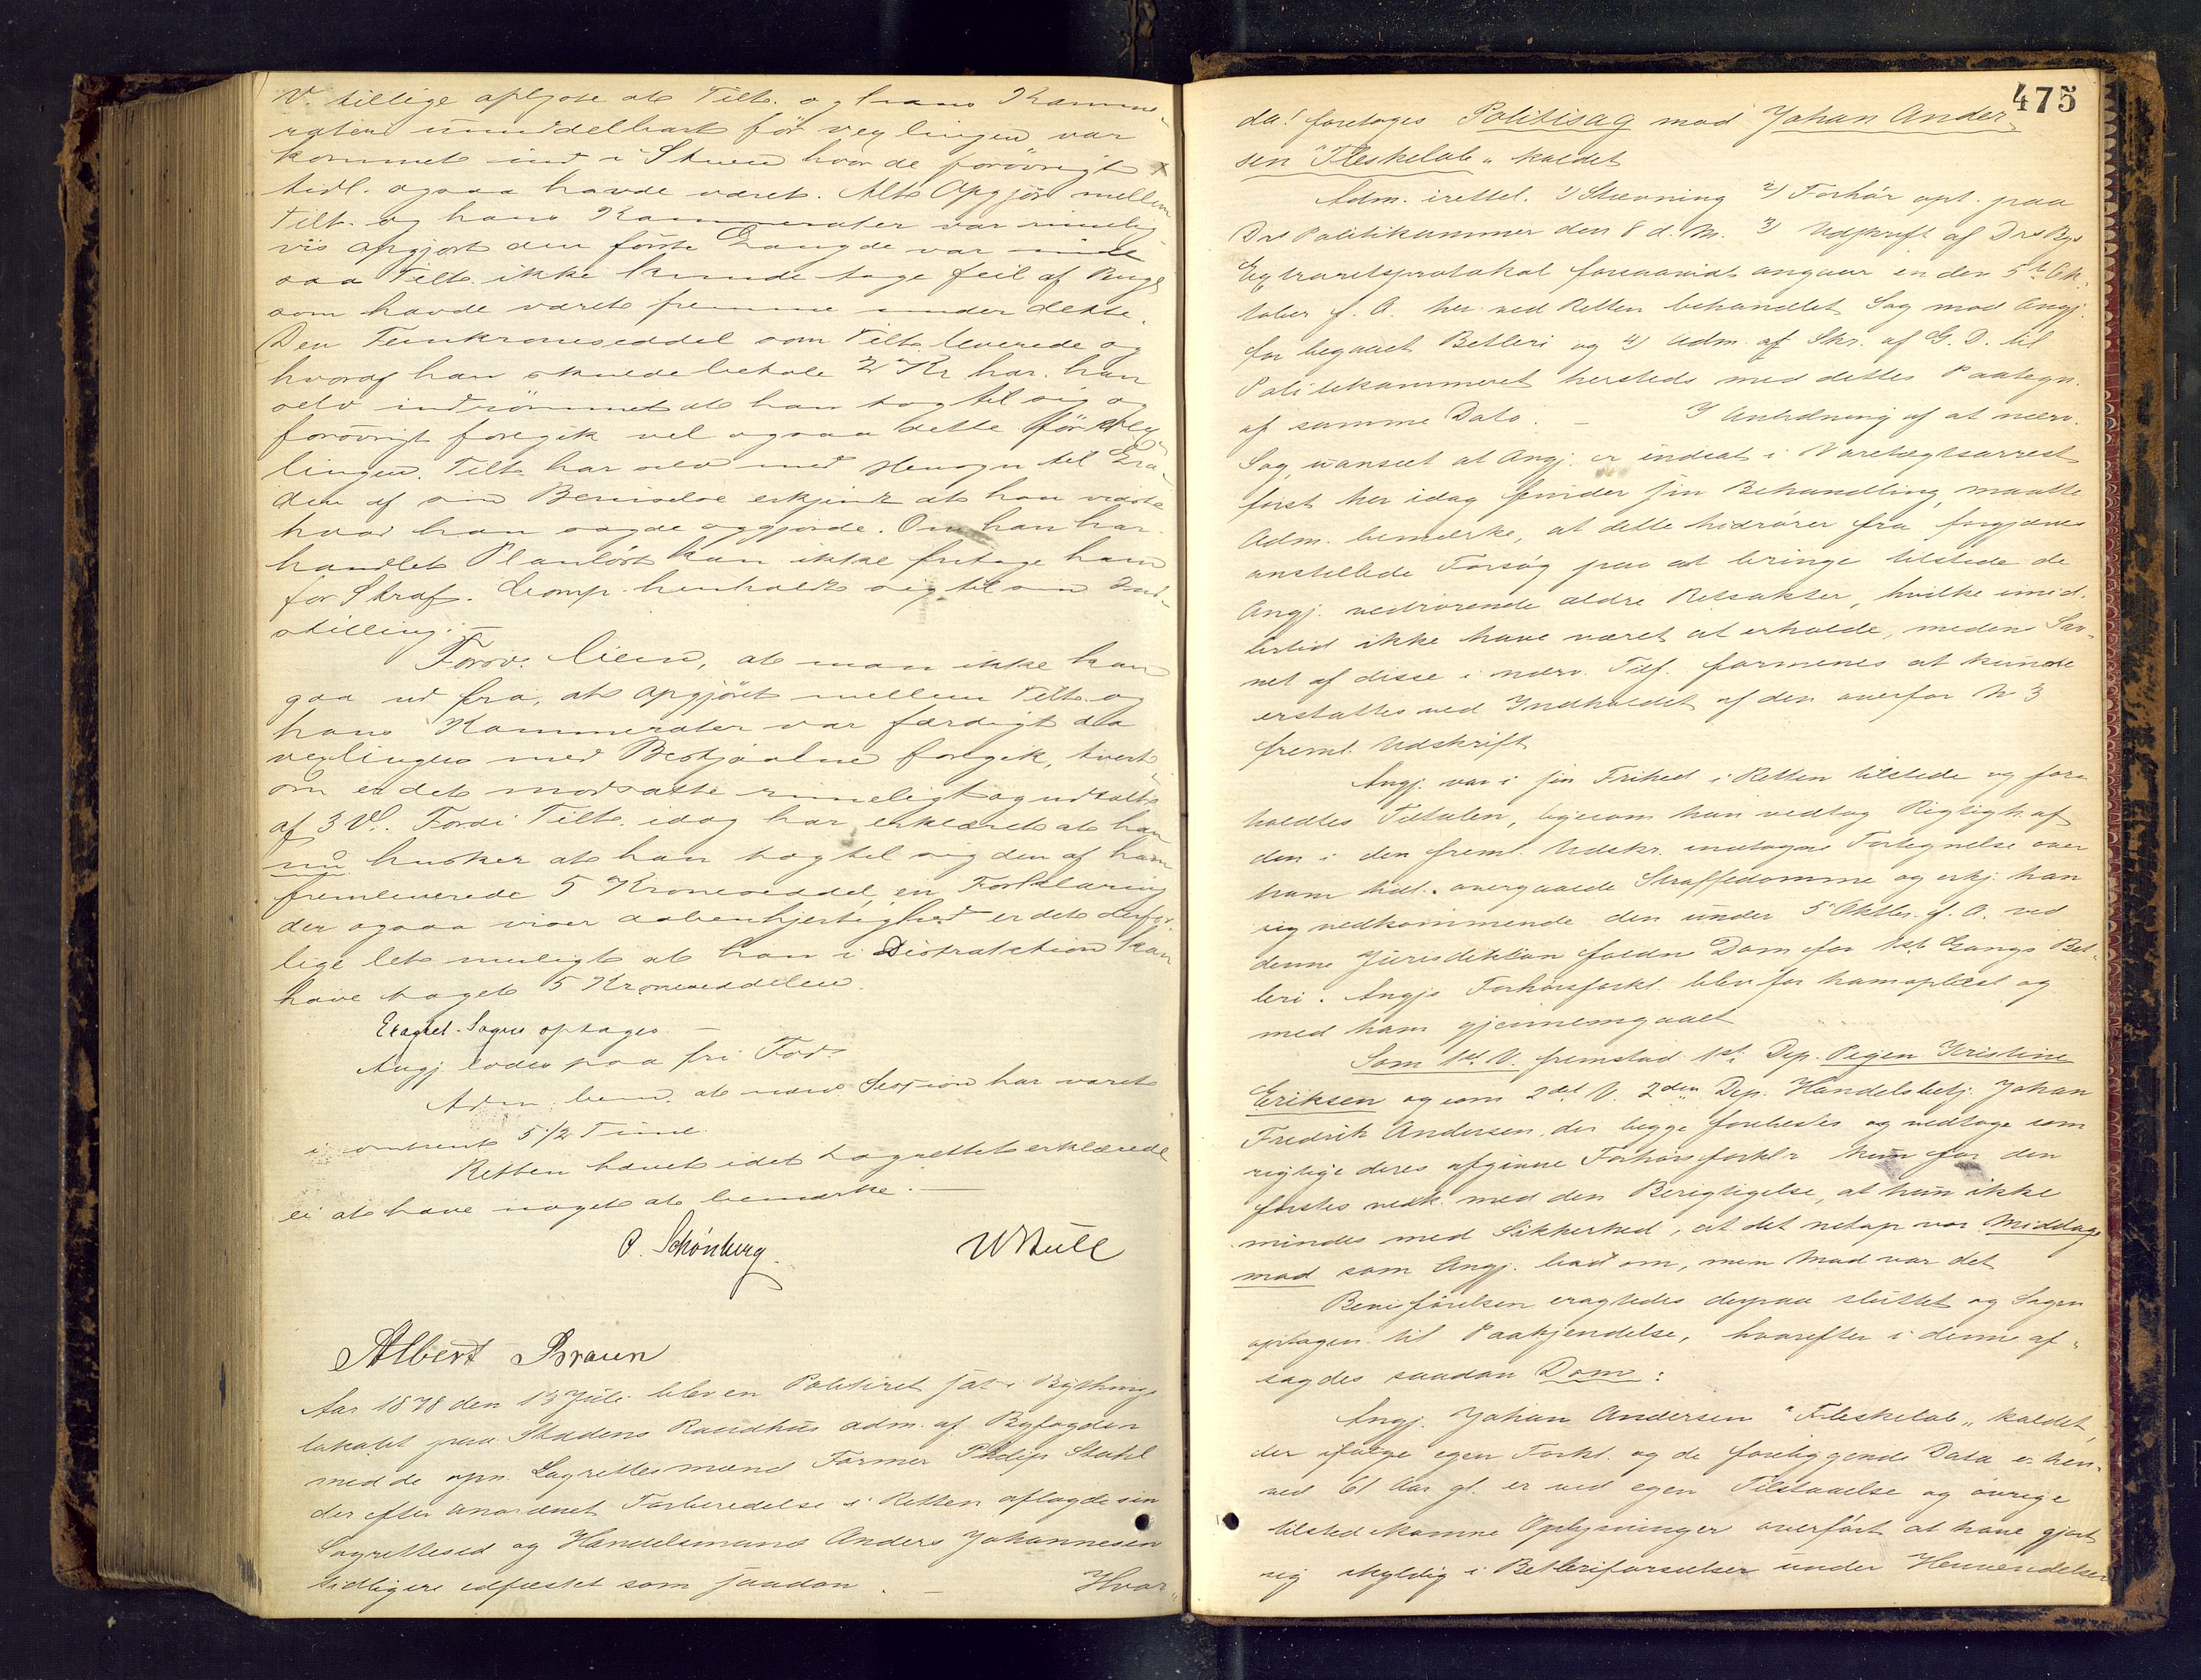 V. tillige oplyste at Tilt. og hans Kamme-
rater umiddelbart før vexlingen var
kommet ind i Stuen hvor de forövrigt
tidl. ogsaa havde været. Alt Opgjør mellem
Tilt. og hans Kammerater var rimelig
vis opgjort den förste Gang de var inde
saa Tilt. ikke kunde tage feil af Penge
som havde været fremme under dette.
Den Femkroneseddel som Tilt. leverede og
hvoraf han skulde betale 2 Kr har han
selv indrömmet at han tog til sig og
forövrigt foregik vel ogsaa dette för vex
lingen. Tilt. har selv med Hensyn til Gra-
den af sin Beruselse erkjendt at han vidste
hvad han sagde og gjorde. Om han har
handlet Planlöst kan ikke fritage ham
for Straf. Comp. henholdt sig til sin Ind-
stilling.
Forsv. , at man ikke kan
gaa ud fra, at opgjöret mellem Tilt. og
hans Kammerater var færdigt da
vexlingen med foregik, tvert-
om er det modsatte rimeligt og udtalt
af 3 V. Fordi Tilt. idag har erklæret at han
nu husker at han tog til sig den af ham
fremleverede 5 Kroneseddel, en Forklaring
der ogsaa viser aabenhjertighed er det
lige let muligt at han i Distraktion kan
have taget 5 Kroneseddelen.
Eragtet. Sagen optages. —
Angj. lodes paa fri Fod.
Adm. bem. at nærv. Session har varet
i omtrent 5 1/2 Time.
Retten hævet idet Lagrettet erklærede
ei at have noget at bemærke. —
O. Schönberg. W Bull
Albert Braun
Aar 1878 den 13 Juli blev en Politiret sat i Bythings
lokalet paa Stadens Raadhus adm. af Byfogden
med de opn. Lagrettesmænd Former Philip Stahl
der efter anordnet Forberedelse i Retten aflagde sin
Lagretteed og Handelsmand Anders Johannesen
tidligere edfæstet som saadan. — Hvor-
475
da! foretoges Politisag mod Johan Ander
sen "Fleskelab" kaldet
Adm. irettel. 1) Stævning 2) Forhör opt. paa
Drs Politikammer den 8 d. M. 3) Udskrift af Drs Bys
Extraretsprotokol forsaavidt angaar en den 5te Ok-
tober f. A. her ved Retten behandlet Sag mod Angj.
for begaaet Betleri og 4) Adm. af Skr. af G. D. til
Politikammeret hersteds med dettes Paategn.
af samme Dato. — I Anledning af at nærv.
Sag, uanseet at Angj. er indsat i Varetægtsarrest
först her idag finder sin Behandling, maatte
Adm. bemærke, at dette hidrörer fra forgjæves
anstillede Forsög paa at bringe tilstede de
Angj. vedrörende ældre Retsakter, hvilke imid-
lertid ikke have været at erholde, medens Sav-
net af disse i nærv. Tilf. formenes at kunde
erstattes ved Indholdet af den ovenfor N 3
freml. Udskrift
Angj. var i sin Frihed i Retten tilstede og fore
holdtes Tiltalen, ligesom han vedtog Rigtigh. af
den i den freml. Udskr. indtagne Fortegnelse over
ham tidl. overgaaede Straffedomme og erkj. han
sig vedkommende den under 5 Oktbr. f. A. ved
denne Jurisdiktion faldne Dom for 1ste Gangs Bet-
leri. Angjs Forhörsforkl. blev for ham oplæst og
med ham gjennemgaaet
Som 1ste V. fremstod 1ste Dep. Pigen Kristine
Eriksen og som 2det V. 2den Dep. Handelsbetj. Johan
Fredrik Andersen der begge forehestes og vedtoge som
rigtige deres afgivne Forhörsforkl. kun for den
förstes vedk. med den Berigtigelse, at hun ikke
mindes med Sikkerhed, at det netop var Middags
mad som Angj. bad om, men Mad var det
Bevisförelsen eragtedes derpaa sluttet og Sagen
optagen til Paakjendelse, hvorefter i denne af-
sagdes saadan Dom:
Angj. Johan Andersen "Fleskelab" kaldet,
der ifölge egen Forkl. og de foreliggende Data er hen-
ved 61 Aar gl. er ved egen Tilstaaelse og övrige
tilstedekomne Oplysninger overfört at have gjort
sig skyldig i Betleriforseelser under Henvendelser